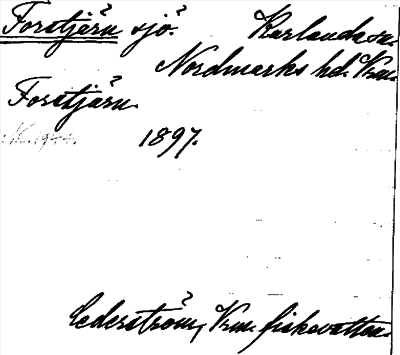 Forstjärn sjö. Karlanda sn.
Nordmarks hd. Vrm.
Forstjärn.
1897.
Cederström, Vrm. fiskevatten.